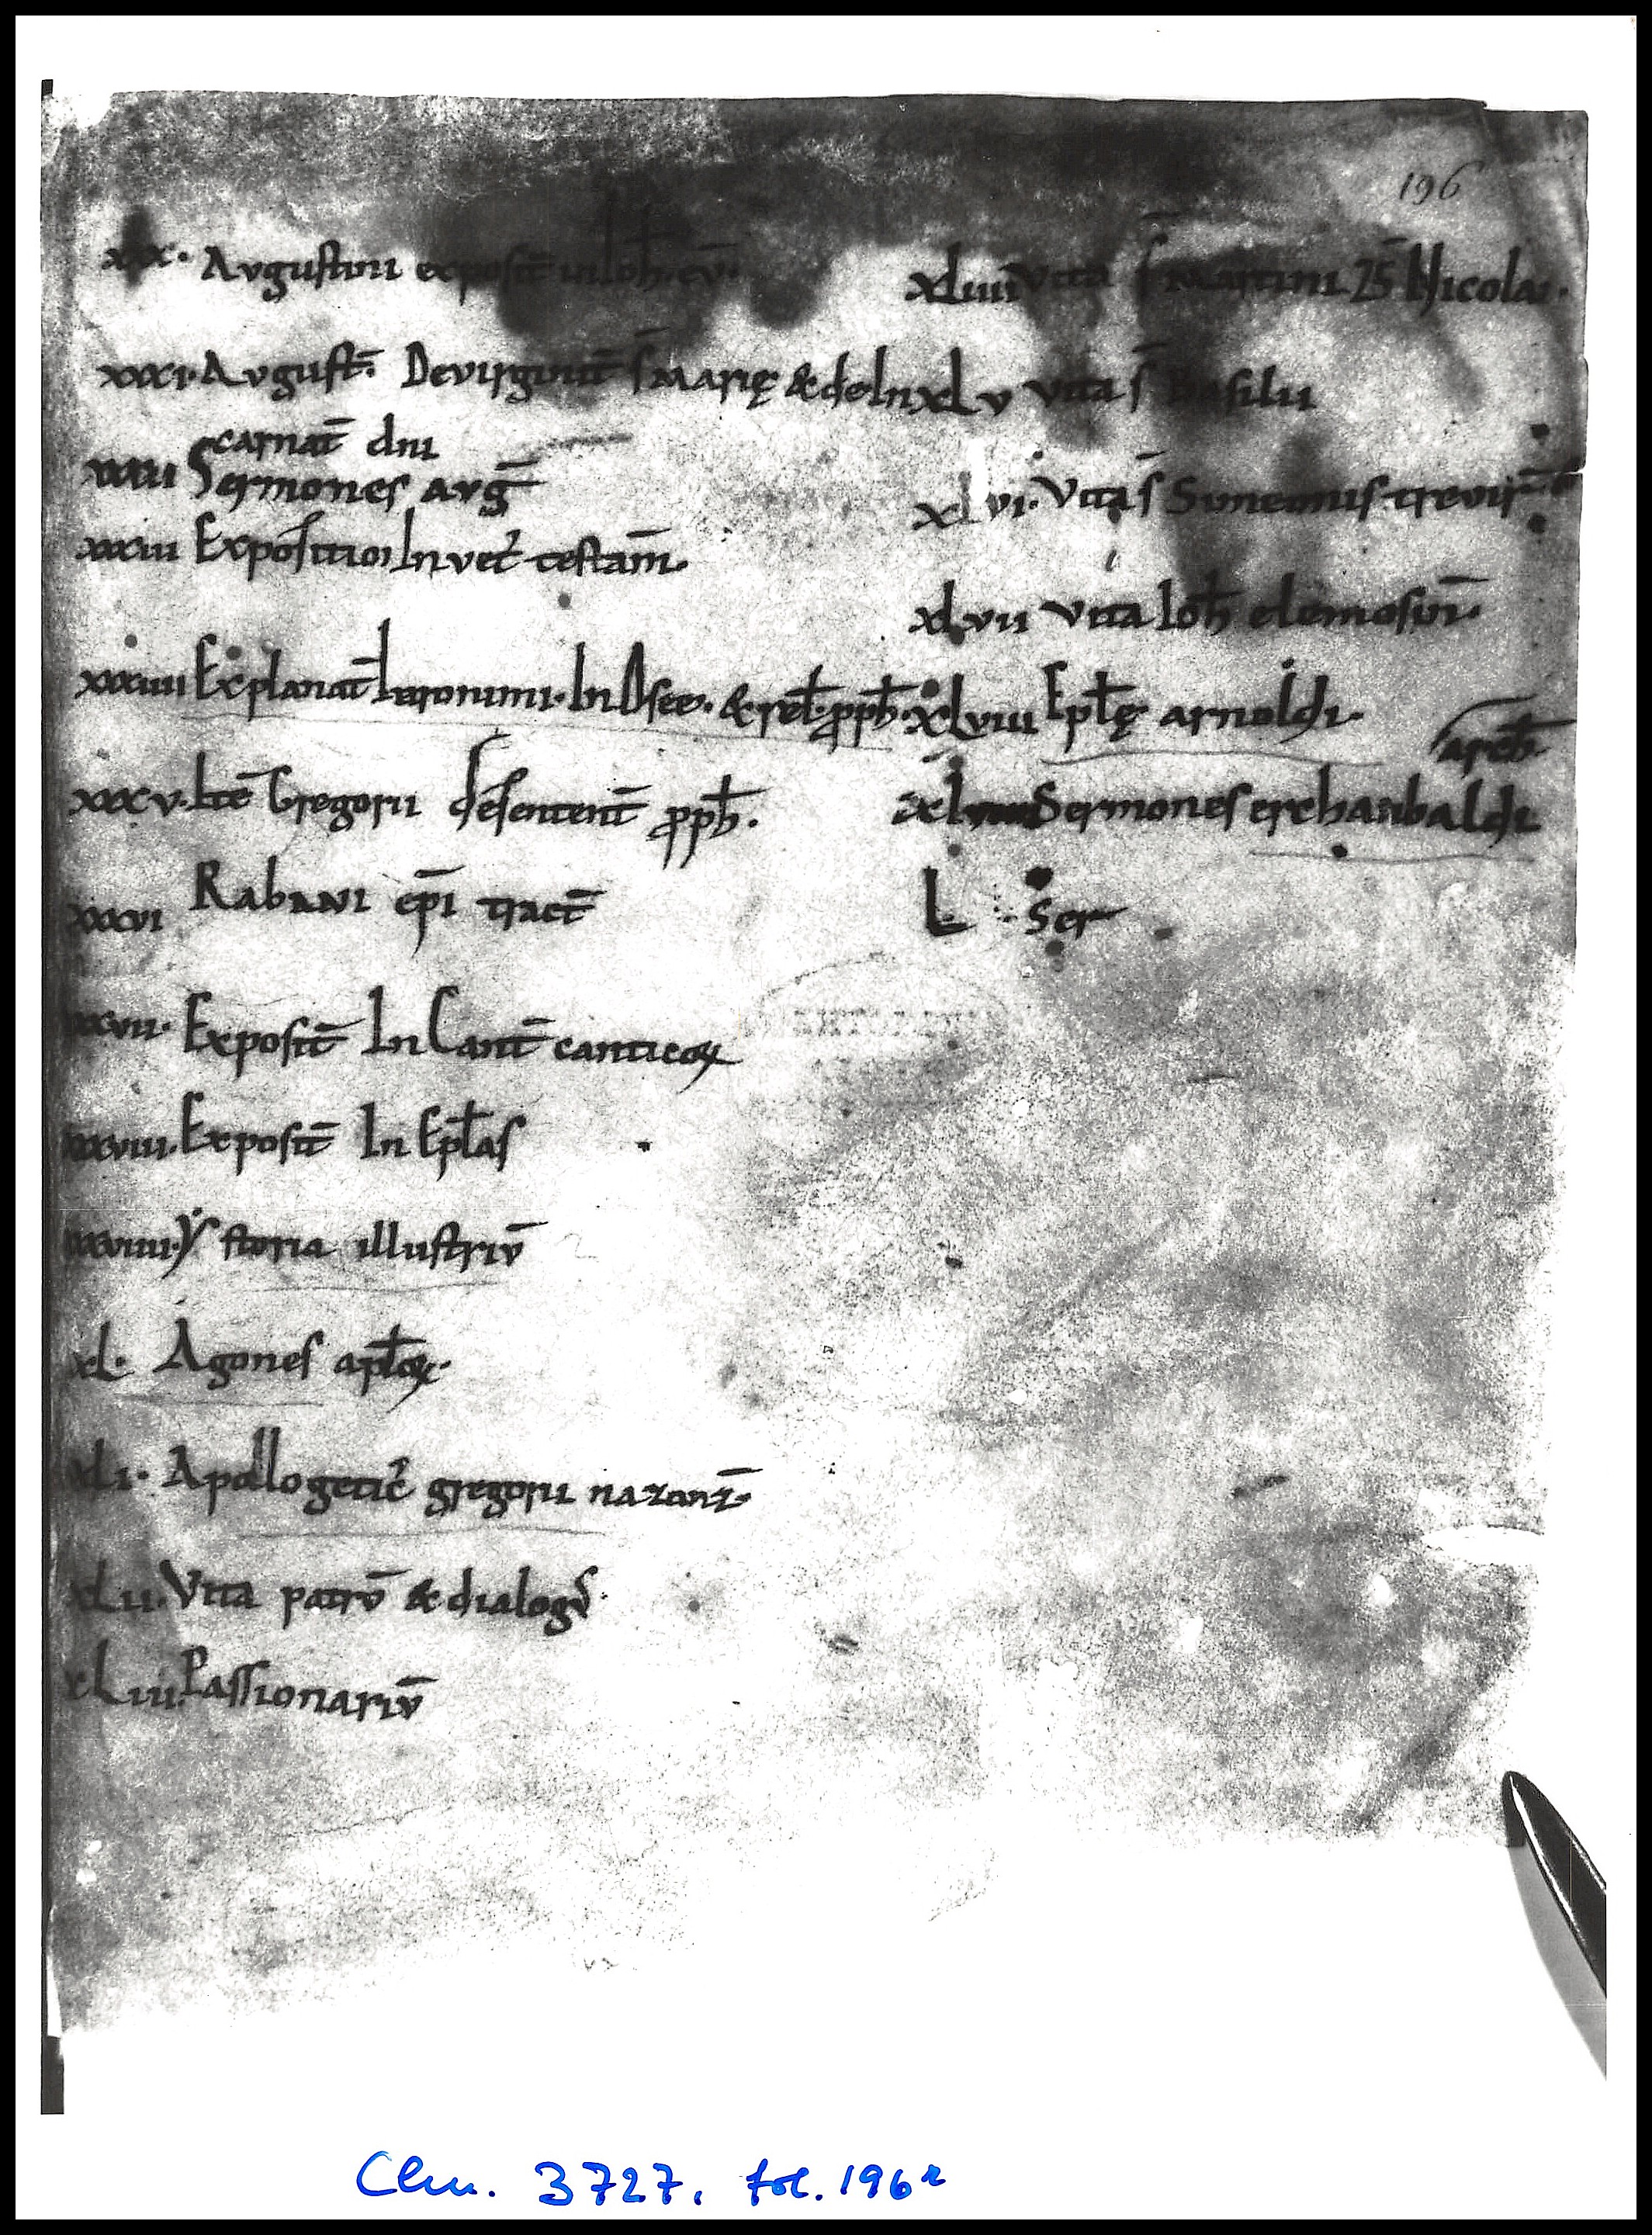 196
xxx. Avgustini exposit̄ in Ioh̄. ev̄.
xxxi. Avgust̄. De virginit̄ s̄ marię & de In
carnat̄ dn̄i
xxxii Sermones avḡ
xxxiii Expositio In vet̓ testam̄.
xxxiiii Explanat̄ Ieronimi. In Osee. & rel̄. ꝓph̄.
xxxv. Itē Gregorii de sentent̄ ꝓph̄.
xxxvi Rabani ep̄i tract̄
xxxvii. Exposit̄ In Cant̄ canticoꝝ
xxxviii. Exposit̄ In Epl̄as
xxxviiii. Ystoria illustriv̄
xl. Agones apl̄oꝝ.
xli. Apollogetic̓ gregorii nazanz̄.
xlii. Vita patrv̄ & dialogꝰ
xliii. Passionariv̄
xliiii Vita s̄ Martini ⁊ s̄ Nicolai.
xlv vita s̄ Basilii
xlvi. Vita s̄ Simeonis trevir̄
xlvii vita Ioh̄ elemosin̄.
xlviii Epl̄ę arnoldi.
arch̄
Sermones erchanbaldi
L Ser
Clm. 3727, fol. 196r